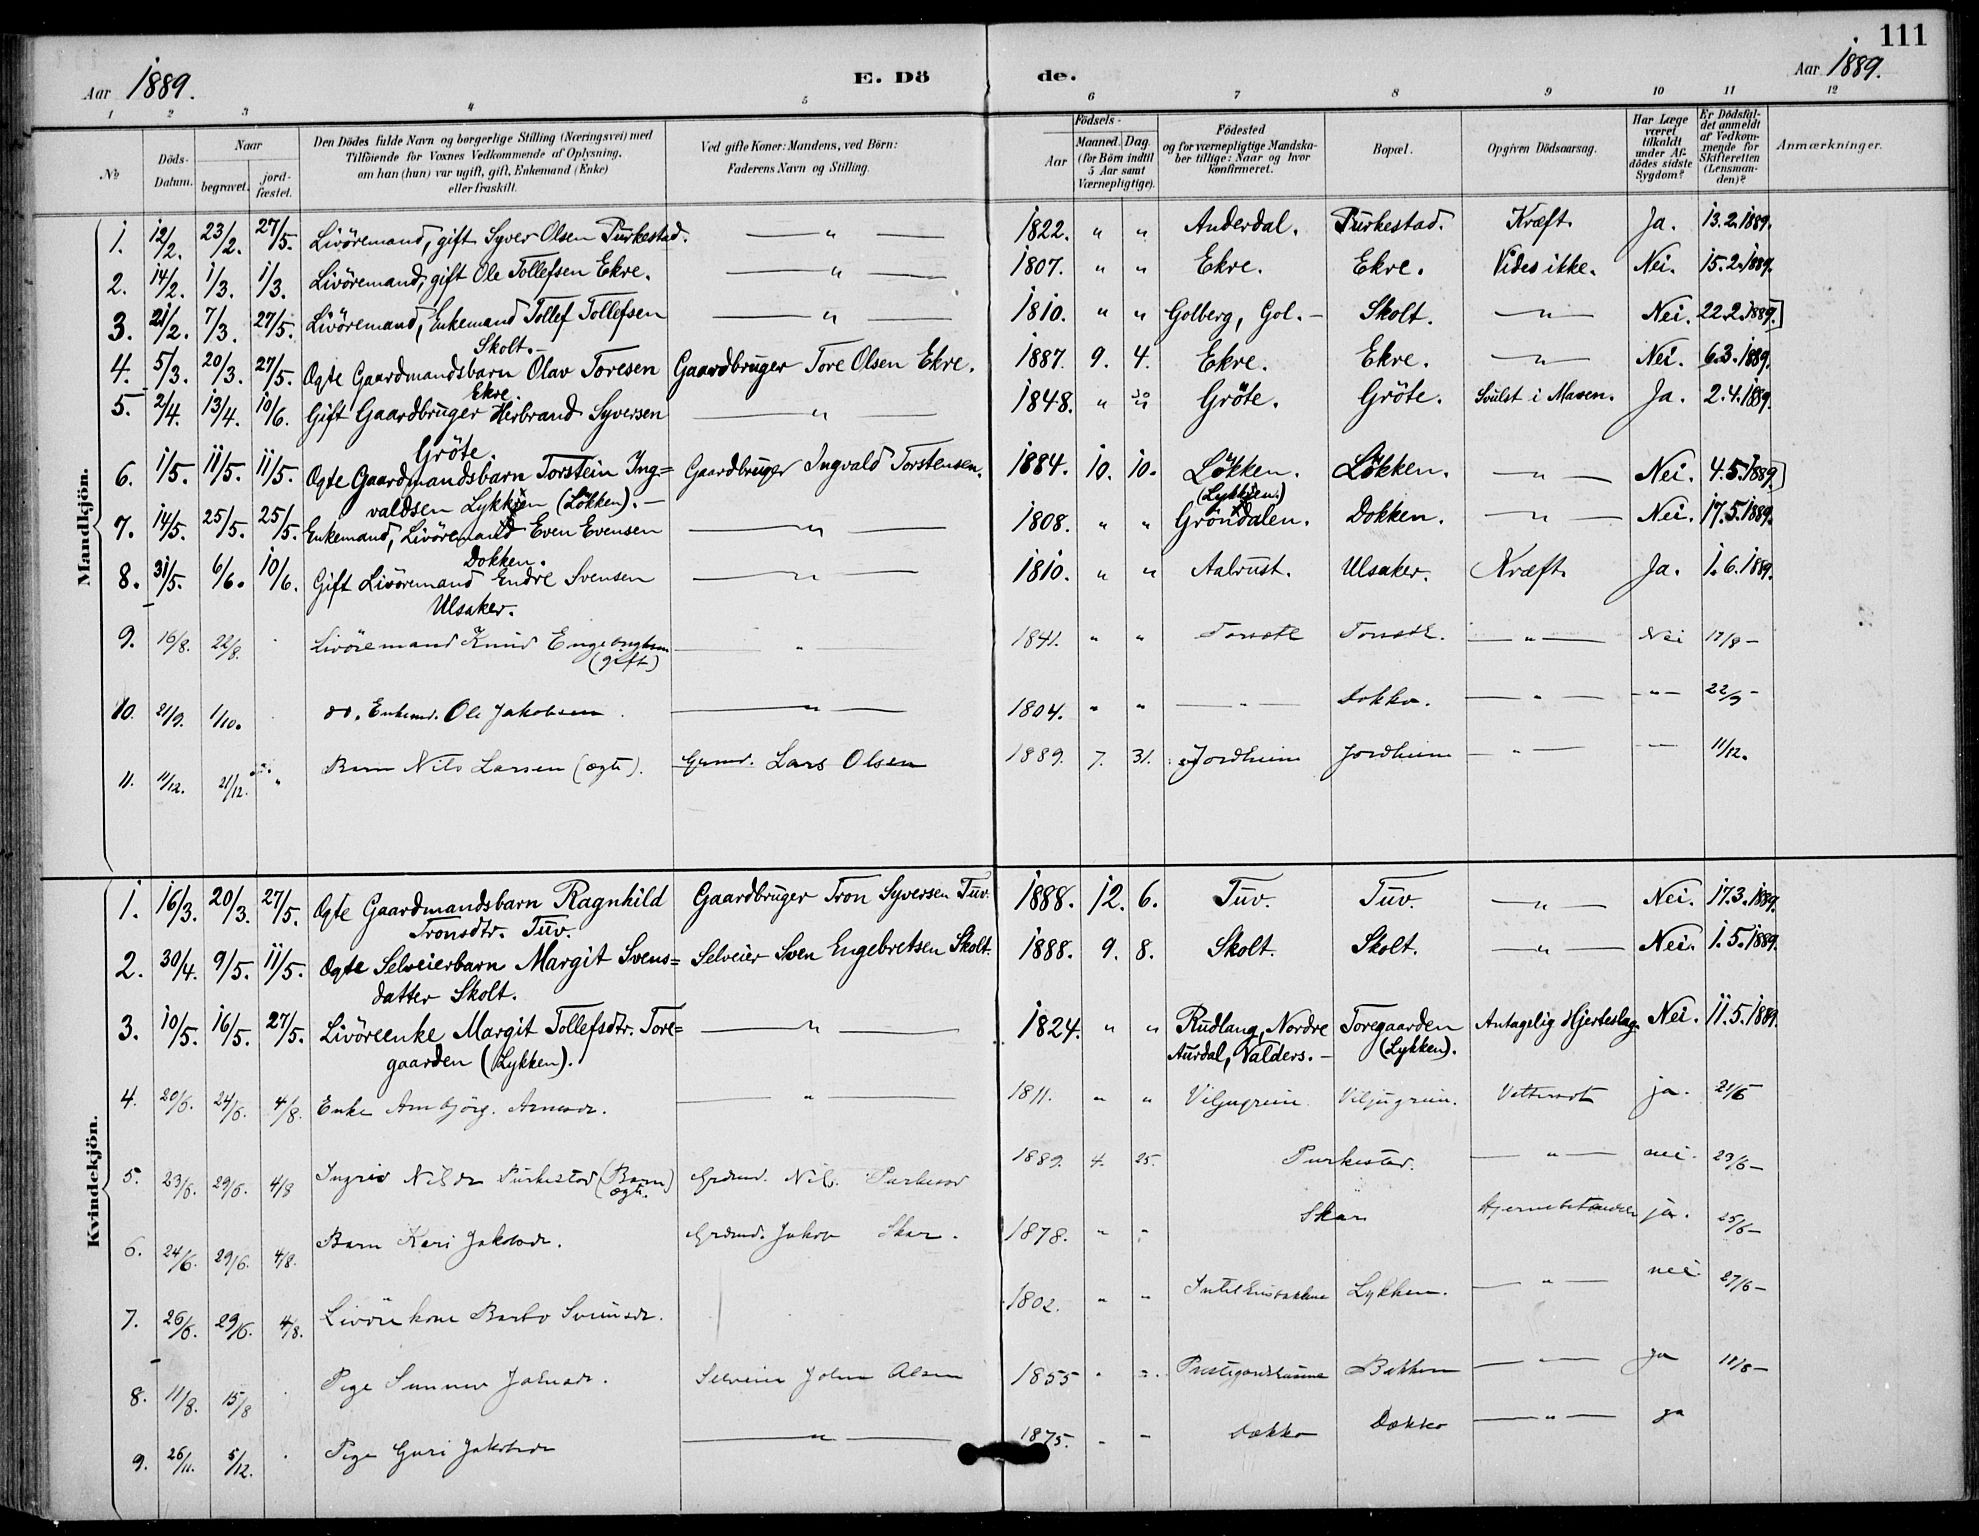 111
Aar 1889. E. Dö de. Aar 1889.
1 2 3 4 5 6 7 8 9 10 11 12
No Döds-Datum. Naar begravet. jord-fæstet. Den Dödes fulde Navn og borgerlige Stilling (Næringsvei) med Tilföiende for Voxnes Vedkommende af Oplysning, om han (hun) var ugift, gift, Enkemand (Enke) eller fraskilt. Ved gifte Koner: Mandens, ved Börn: Faderens Navn og Stilling. Aar Födsels- Maaned. Dag. (for Börn indtil 5 Aar samt Værnepligtige). Födested og for værnepligtige Mandskaber tillige: Naar og hvor konfirmeret. Bopæl. Opgiven Dödsaarsag. Har Læge været tilkaldt under Afdödes sidste Sygdom? Er Dödsfaldet anmeldt af Vedkommende for Skifteretten (Lensmanden)? Anmærkninger.
Mandkjön.
1. 12/2. 23/2. 27/5. Livöremand, gift Syver Olsen Purkestad. — " — 1822. " " Anderdal. Purkestad. Kræft. Ja. 13.2.1889.
2. 14/2. 1/3. 1/3. Livöremand, gift Ole Tollefsen Ekre. — " — 1807. " " Ekre. Ekre. Vides ikke. Nei. 15.2.1889.
3. 21/2. 7/3. 27/5. Livöremand, Enkemand Tollef Tollefsen — " — 1810. " " Golberg, Gol. — Skolt. — " — Nei. 22.2.1889.
Skolt. —
4. 5/3. 20/3. 27/5. Ægte Gaardmandsbarn Olav Toresen Gaardbruger Tore Olsen Ekre. 1887. 9. 4. Ekre. Ekre. — " — Nei. 6.3.1889.
Ekre.
5. 2/4. 13/4. 10/6. Gift Gaardbruger Herbrand Syversen — " — 1848. " " Gröte. Gröte. Svulst i Maven. Ja. 2.4.1889.
Gröte.
6. 1/5. 11/5. 11/5. Ægte Gaardmandsbarn Torstein Ing= Gaardbruger Ingvald Torstensen. 1884. 10. 10. Lökken. Lökken. — " — Nei. 4.5.1889.
valdsen Lykkjen (Lökken). — (Lykkjen.)
7. 14/5. 25/5. 25/5. Enkemand, Livöremand Even Evensen — " — 1808. " " Gröndalen. Dokken. — " — Nei. 17.5.1889.
Dokken.
8. 31/5. 6/6. 10/6. Gift Livöremand Endre Svensen — " — 1810. " " Aalrust. Ulsaker. Kræft. Ja. 1.6.1889.
Ulsaker.
9. 16/8. 22/8. Livöremand Knud Engebrightsen — " — 1841. " " — " — Nei 17/8 —
(gift)
10. 21/9. 1/10. do. Enkemd. Ole Jakobsen. — " — 1804. " " — " — Dokko. — " — — " — 22/9 —
11. 11/12. 21/12. " Barn Nils Larsen (ægte). Grmd. Lars Olsen 1889. 7. 31. Jordheim Jordheim — " — — " — 11/12.
Kvindekjön.
1. 16/3. 20/3. 27/5. Ægte Gaardmandsbarn Ragnhild Gaardbruger Tron Syversen Tuv. 1888. 12. 6. Tuv. Tuv. — " — Nei. 17.3.1889.
Tronsdtr. Tuv.
2. 30/4. 9/5. 11/5. Ægte Selveierbarn Margit Svens= Selveier Sven Engebretsen Skolt. 1888. 9. 8. Skolt. Skolt. — " — Nei. 1.5.1889.
datter Skolt.
3. 10/5. 16/5. 27/5. Livöreenke Margit Tollefsdtr. Tore= — " — 1824. " " Rudlang, Nordre Toregaarden Antagelig Hjerteslag Nei. 11.5.1889.
gaarden (Lykken). Aurdal, Valders. — (Lykken).
4. 20/6. 24/6. 4/8. Enke Ambjörg Arnesdr. — " — 1811. " " Viljugrein Viljugrein. Vattersot ja. 21/6
5. 23/6. 29/6. 4/8 Ingrid Nilsdr Purkestad (Barn) Grdmd. Nils Purkestad 1889. 4. 25. Purkestad. — " — nei. 23/6 —
ægte.
6. 24/6. 29/6. 4/8. Barn Kari Jakobsdr. Grdmd. Jakob Skar. 1878. " " Skar ja. 25/6 —
7. 26/6. 29/6. 4/8. Livörekone Barbo Svensdr. 1802. " " Lykken. — " — nei 27/6 —
8. 11/8. 15/8 Pige Johnsdr. Selveier John Olsen 1855 " " Bakken — " — ja 11/8 —
9. 26/11. 5/12. Pige Guri Jakobsdr — " — 1875. " " Dokko Dokko — " — ja